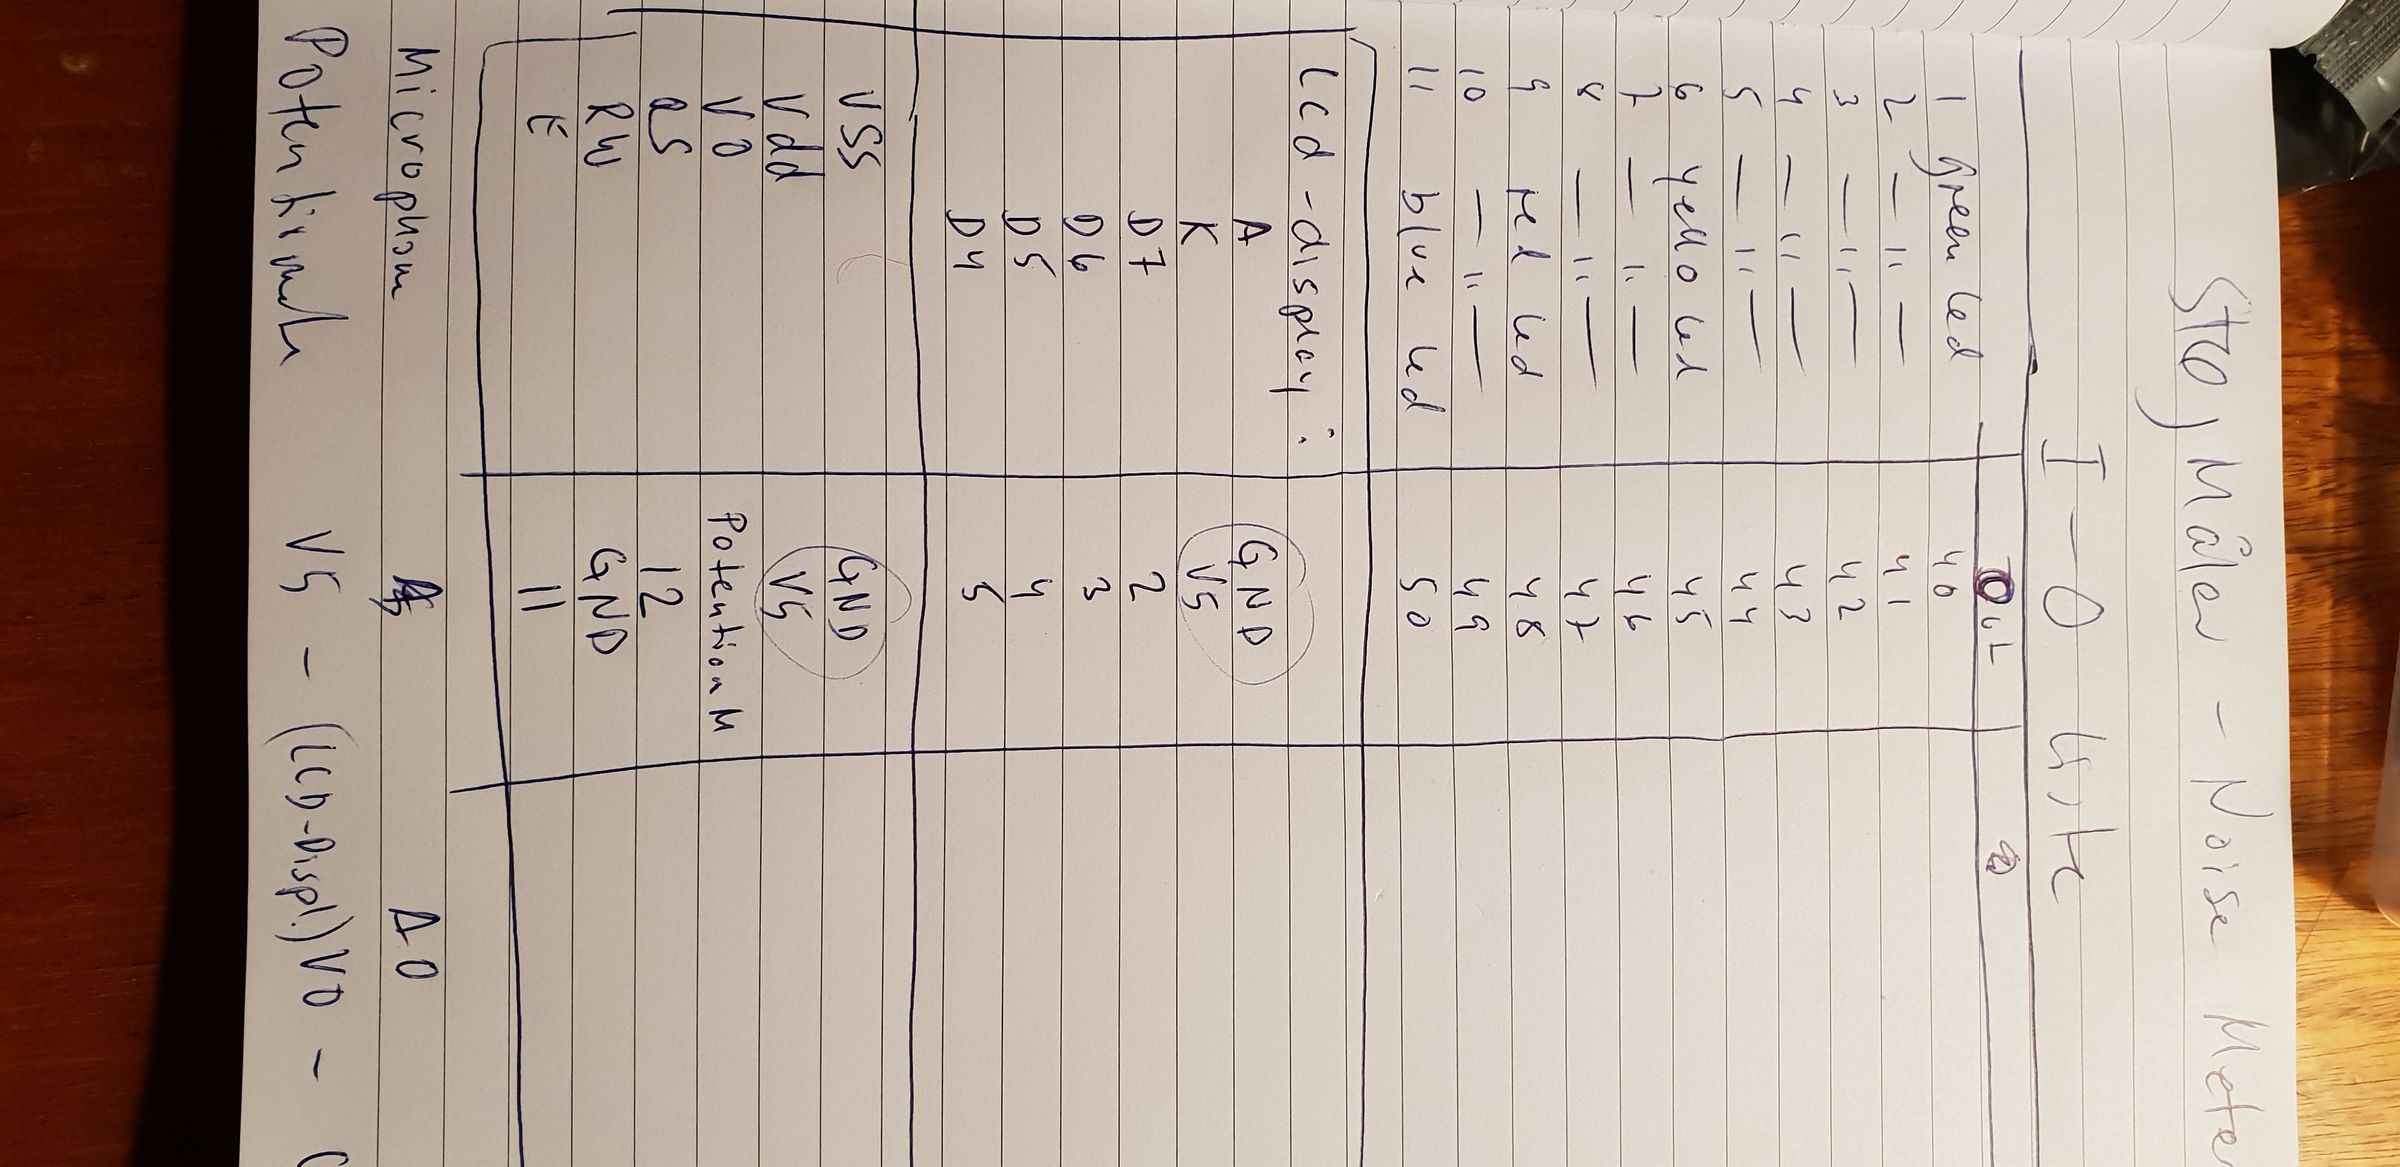 Støymåler - Noise Meter
I-O liste
Out
1 green led 40
2 — 11 — 41
3 — 11 — 42
4 — 11 — 43
5 — 11 — 44
6 yello led 45
7 — 11 — 46
8 — 11 — 47
9 red led 48
10 — 11 — 49
11 blue led 50
Lcd-display:
A GND
K V5
D7 2
D6 3
D5 4
D4 5
VSS GND
Vdd V5
VO PotentionM
RS 12
RW GND
E 11
Microphone A0
V5 - (LCD-Displ.) VO -